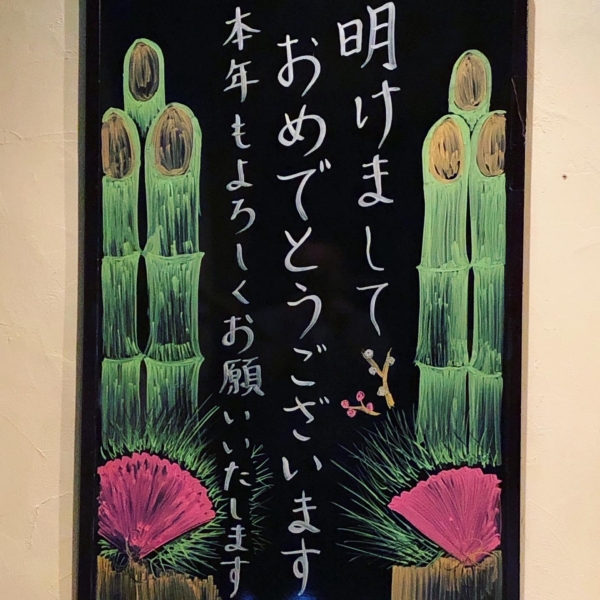 明けまして
おめでとうございます
本年もよろしくお願いいたします